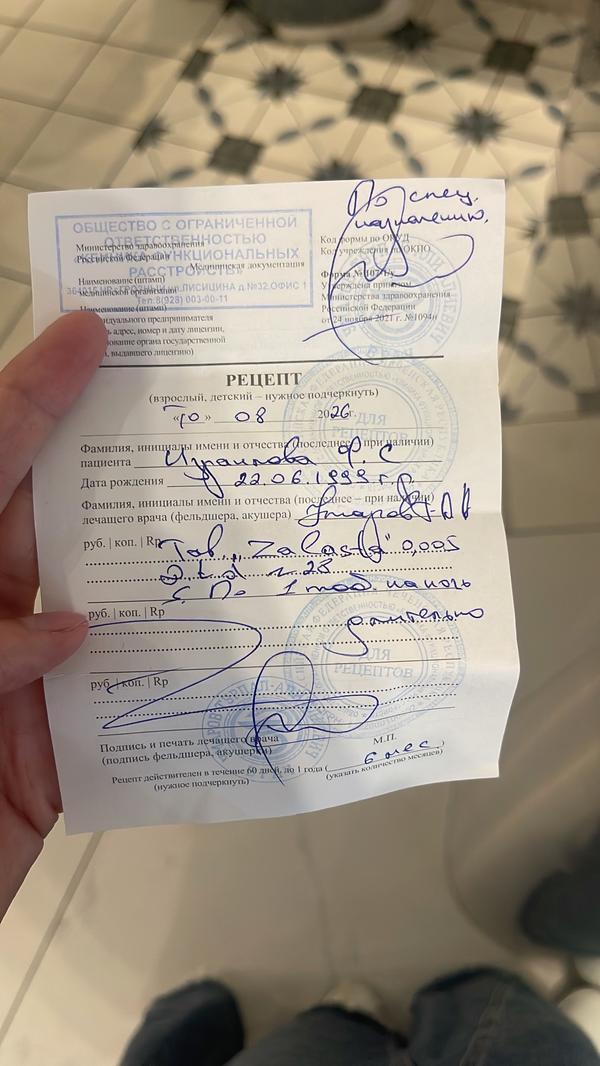 По спец.
назначению.
ОБЩЕСТВО С ОГРАНИЧЕННОЙ
ОТВЕТСТВЕННОСТЬЮ
ФУНКЦИОНАЛЬНЫХ
РАССТРОЙСТВ»
ул.ЛИСИЦИНА д.№32.ОФИС 1
Тел:8(928) 003-00-11
Министерство здравоохранения
Российской Федерации
Медицинская документация
Наименование (штамп)
медицинской организации
Наименование (штамп)
индивидуального предпринимателя
адрес, номер и дату лицензии,
нование органа государственной
, выдавшего лицензию)
Код формы по ОКУД
Код учреждения по ОКПО
Форма №
Утверждена приказом
Министерства здравоохранения
Российской Федерации
от 24 ноября 2021 г. №1094н
РЕЦЕПТ
(взрослый, детский – нужное подчеркнуть)
«10» 08 2026г.
Фамилия, инициалы имени и отчества (последнее – при наличии)
пациента Ф. С
Дата рождения 22.06.1999 г.р.
Фамилия, инициалы имени и отчества (последнее – при наличии)
лечащего врача (фельдшера, акушера)
руб. | коп. | Rp Tab. „Zalasta" 0,005
D.t.d. N 28
S. По 1 таб на ночь
руб. | коп. | Rp
длительно
руб. | коп. | Rp
ДЛЯ РЕЦЕПТОВ
ДЛЯ РЕЦЕПТОВ
Подпись и печать лечащего врача
(подпись фельдшера, акушерки)
М.П.
Рецепт действителен в течение 60 дней, до 1 года (6 мес.)
(нужное подчеркнуть)
(указать количество месяцев)